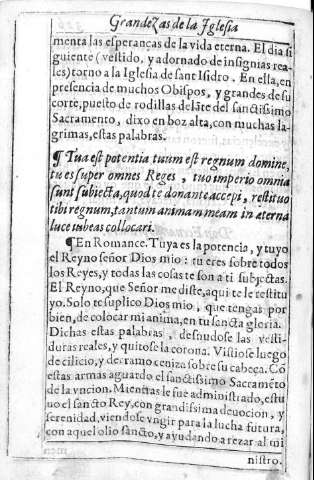 Grandezas de la Iglesia
menta las esperanças de la vida eterna. El dia si
guiente (vestido, y adornado de insignias rea-
les) torno a la Iglesia de sant Isidro. En ella, en
presencia de muchos Obispos, y grandes de su
corte, puesto de rodillas delāte del sanctissimo
Sacramento, dixo en boz alta, con muchas la-
grimas, estas palabras.
¶ Tua est potentia tuum est regnum domine,
tu es super omnes Reges, tuo imperio omnia
sunt subiecta, quod te donante accepi, restituo
tibi regnum, tantum animam meam in æterna
luce iubeas collocari.
¶ En Romance. Tuya es la potencia, y tuyo
el Reyno señor Dios mio: tu eres sobre todos
los Reyes, y todas las cosas te son a ti subjectas.
El Reyno, que Señor me diste, aqui te le restitu
yo. Solo te suplico Dios mio, que tengas por
bien, de colocar mi anima, en tu sancta gloria.
Dichas estas palabras, desnudose las vesti-
duras reales, y quitose la corona. Vistiose luego
de cilicio, y derramo ceniza sobre su cabeça. Cō
estas armas aguardo el sanctissimo Sacramēto
de la vncion. Mientras le fue administrado, estu
uo el sancto Rey, con grandissima deuocion, y
serenidad, viendose vngir para la lucha futura,
con aquel olio sancto, y ayudando a rezar al mi
nistro.